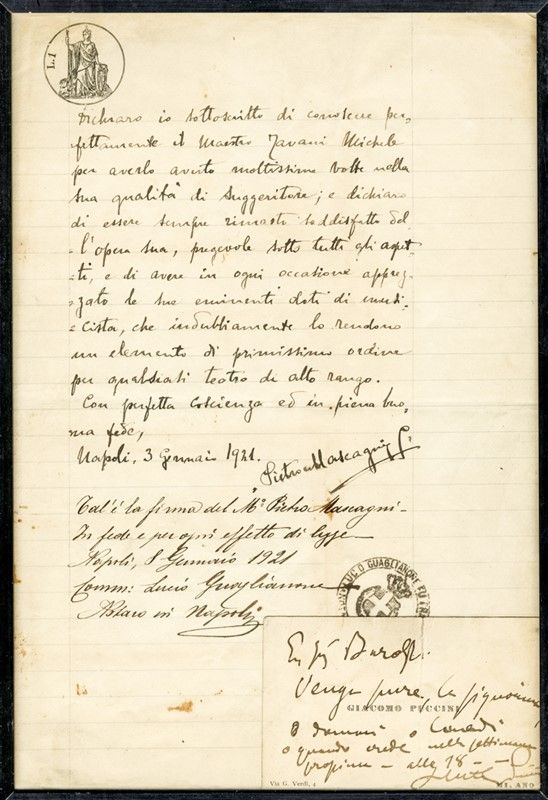 L.1
Dichiaro io sottoscritto di conoscere per-
fettamente il Maestro Zavani Michele
per averlo avuto moltissime volte nella
sua qualità di Suggeritore; e dichiaro
di essere sempre rimasto soddisfatto del-
-l'opera sua, pregevole sotto tutti gli aspet-
-ti, e di avere in ogni occasione apprez-
-zato le sue eminenti doti di musi-
-cista, che indubbiamente lo rendono
un elemento di primissimo ordine
per qualsiasi teatro di alto rango.
Con perfetta coscienza ed in piena buo-
na fede,
Napoli, 3 Gennaio 1921.
Pietro Mascagni
Tal'è la firma del Mo Pietro Mascagni-
In fede e per ogni effetto di legge
Napoli, 8 Gennaio 1921
Comm: Lucio Guaglianone
Notaro in Napoli
GUAGLIANONE
Venga pure, la
GIACOMO PUCCINI
o domani o
o quando crede nella settimana
alle 18
Via G. Verdi, 4